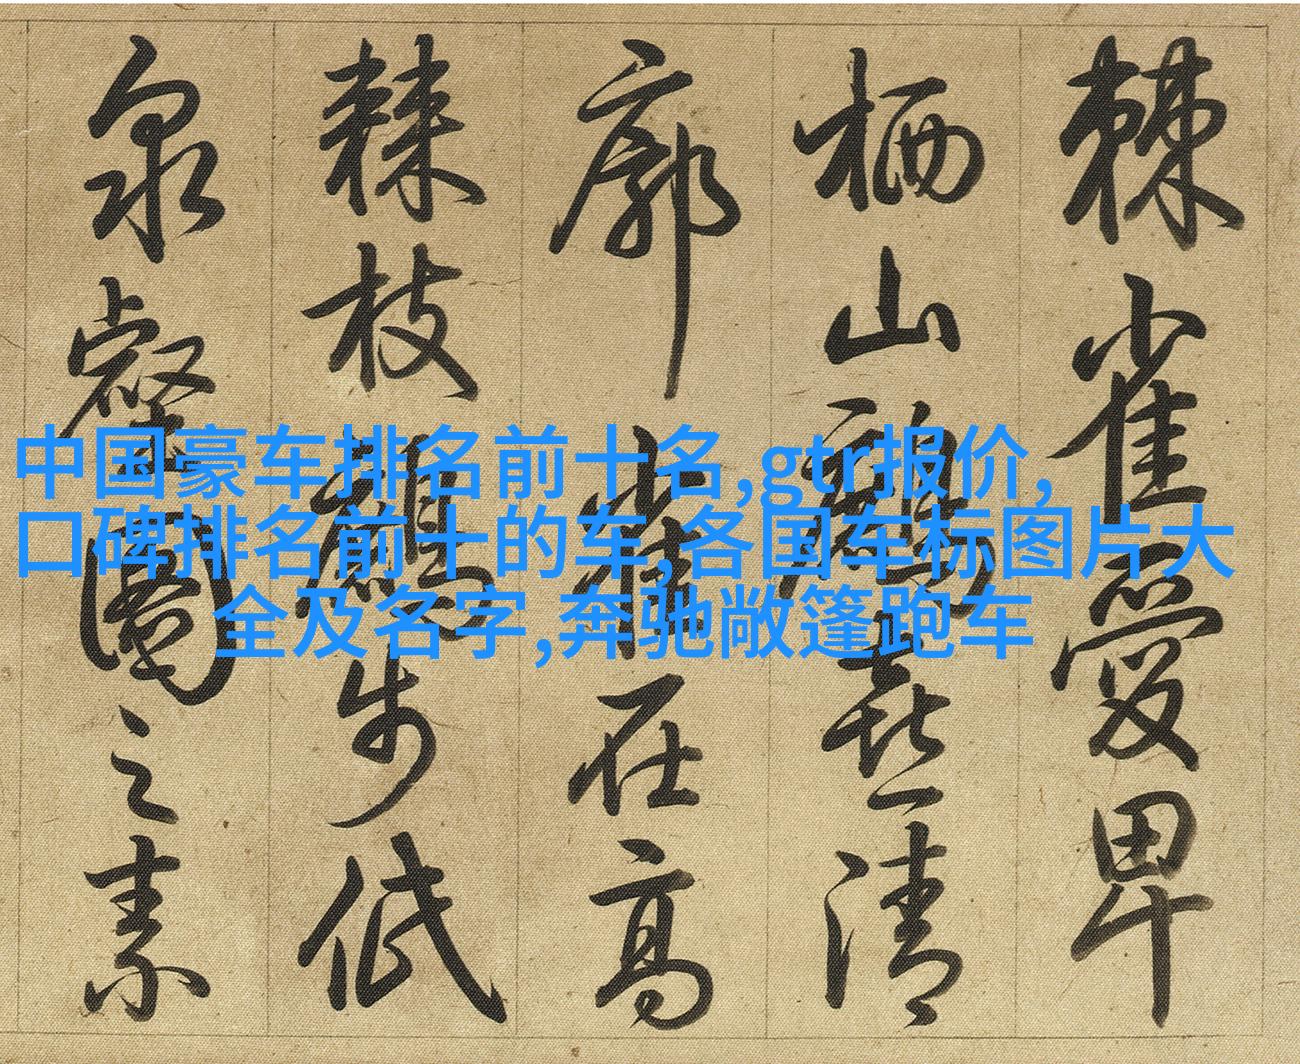 棘雀愛卑
栖山喜清
廓在高
棘枝步低
泉之素
中国豪车排名前十名,gtr报价,
口碑排名前十的车,各国车标图片大
全及名字,奔驰敞篷跑车